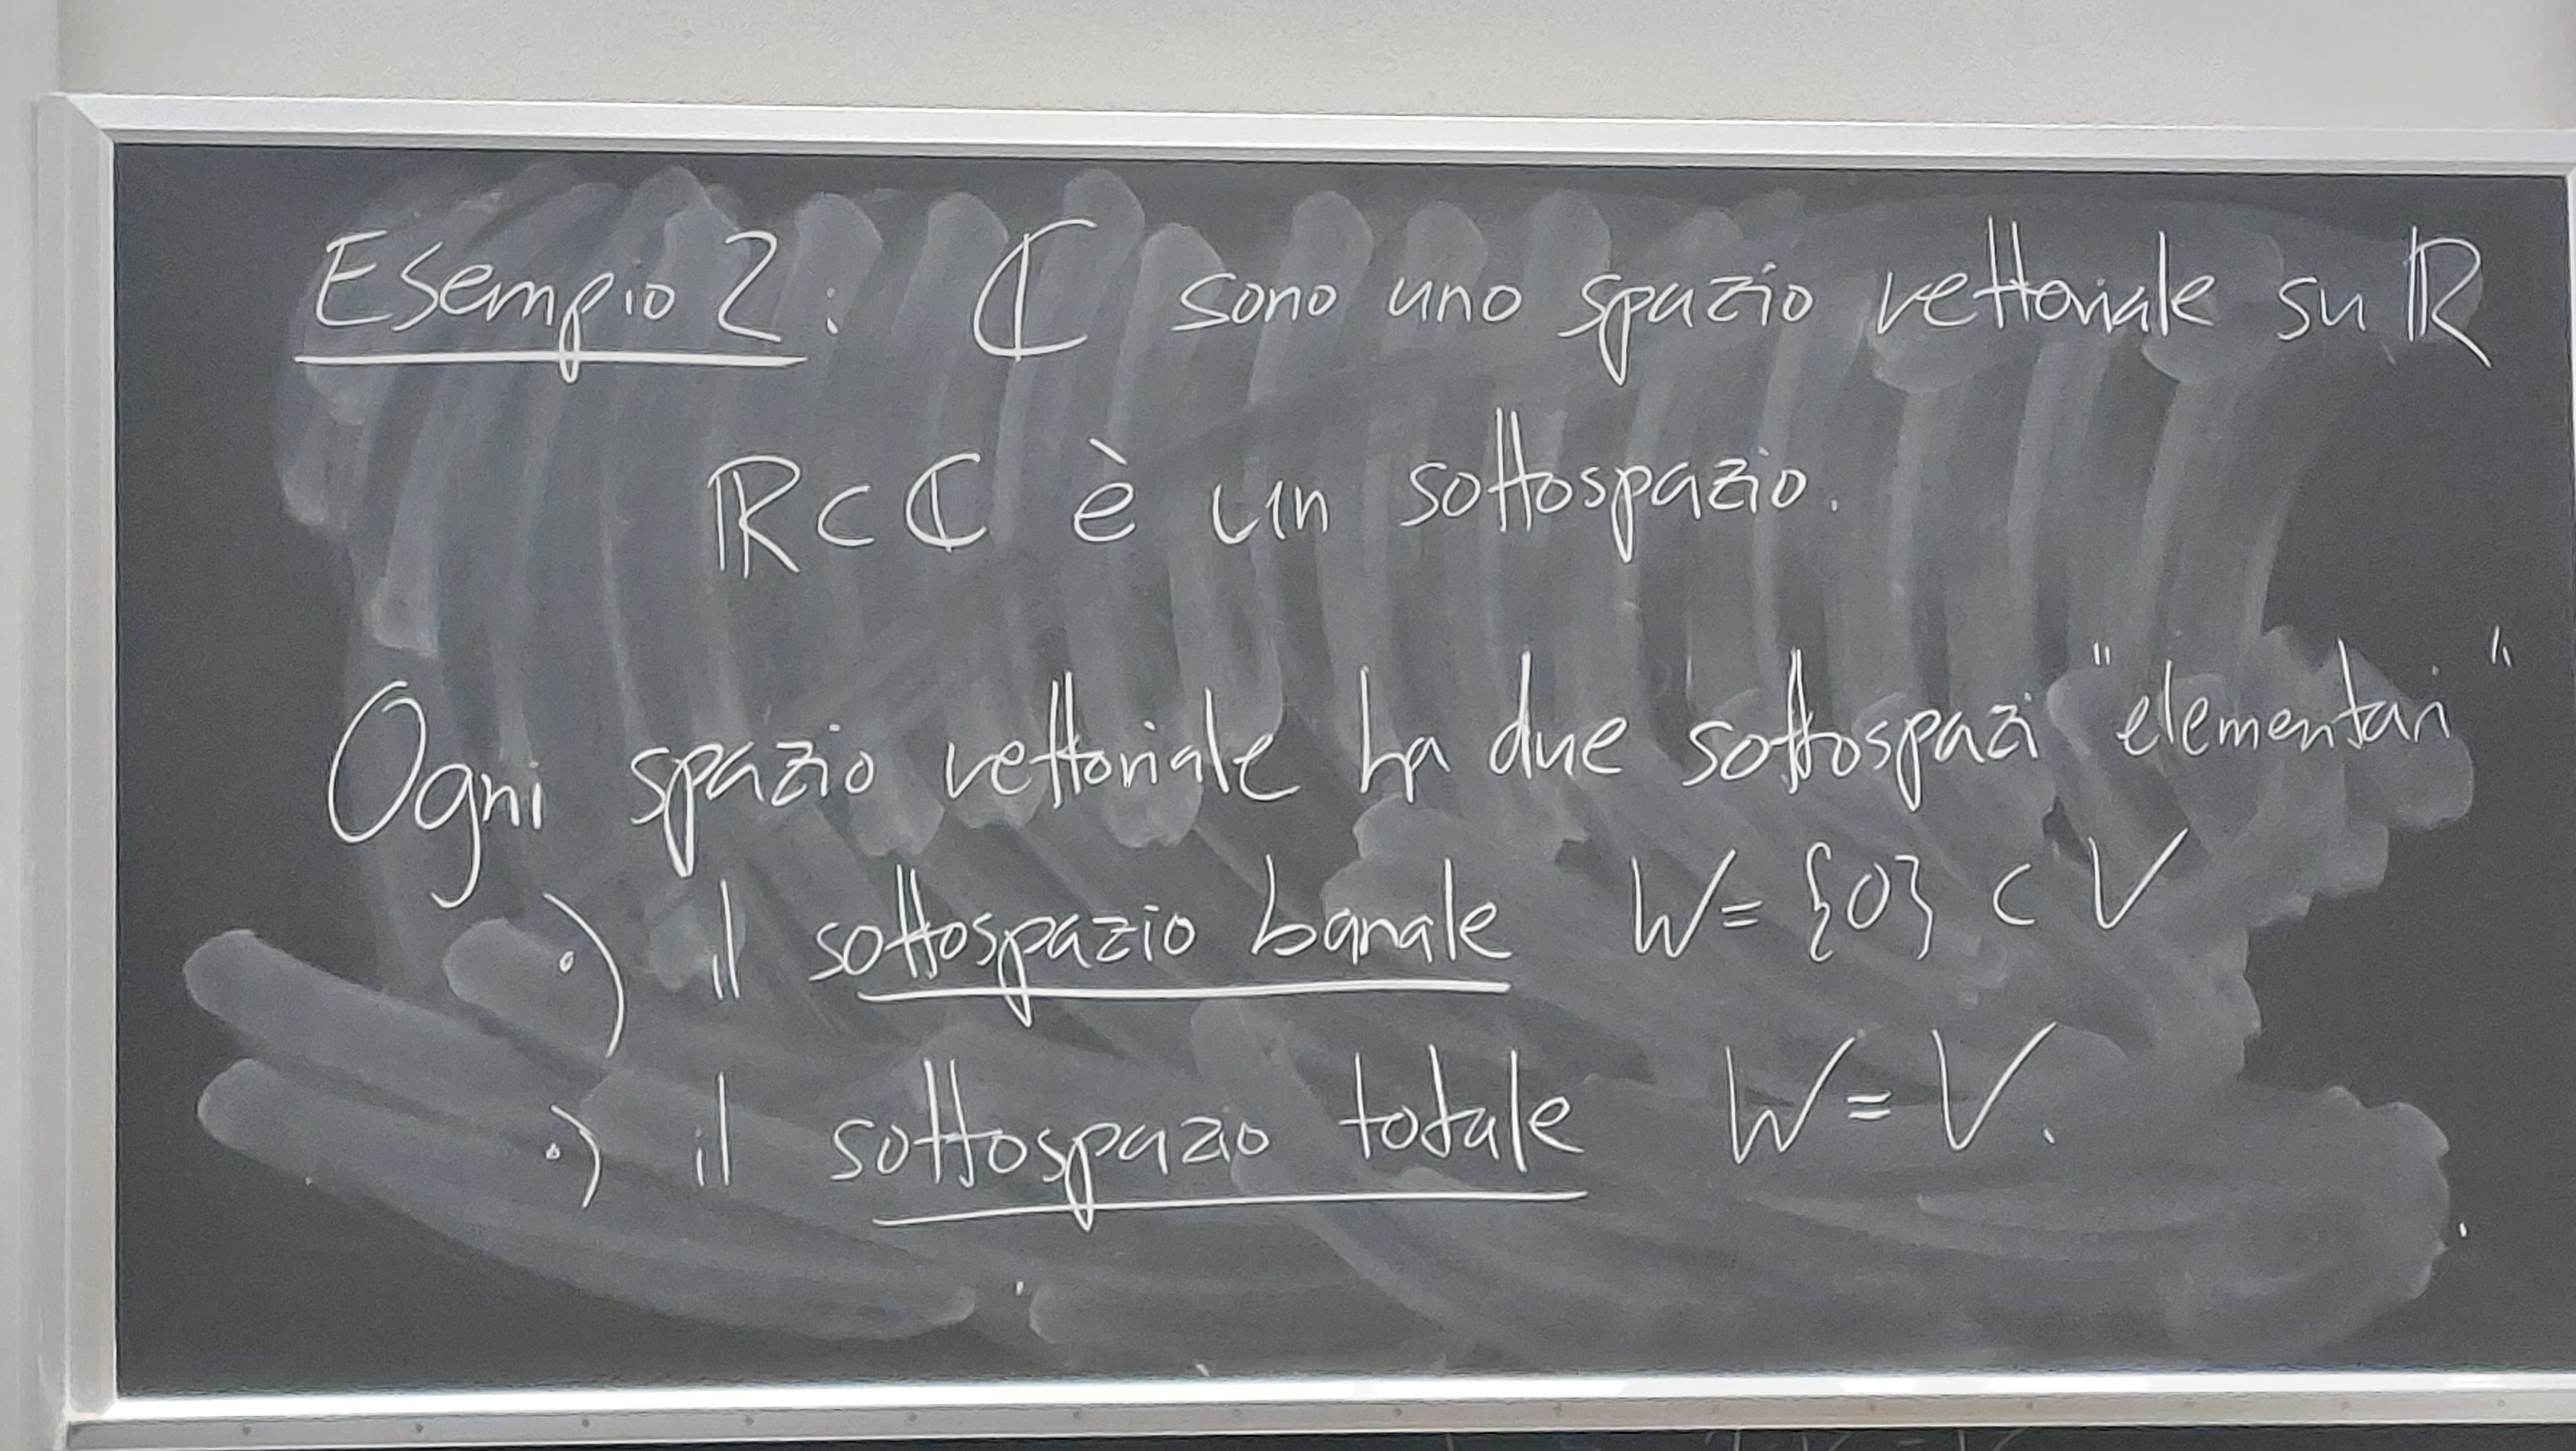 Esempio 2: ℂ sono uno spazio vettoriale su ℝ
ℝ ⊂ ℂ è un sottospazio.
Ogni spazio vettoriale ha due sottospazi "elementari"
·) il sottospazio banale W = {0} ⊂ V
·) il sottospazio totale W = V.